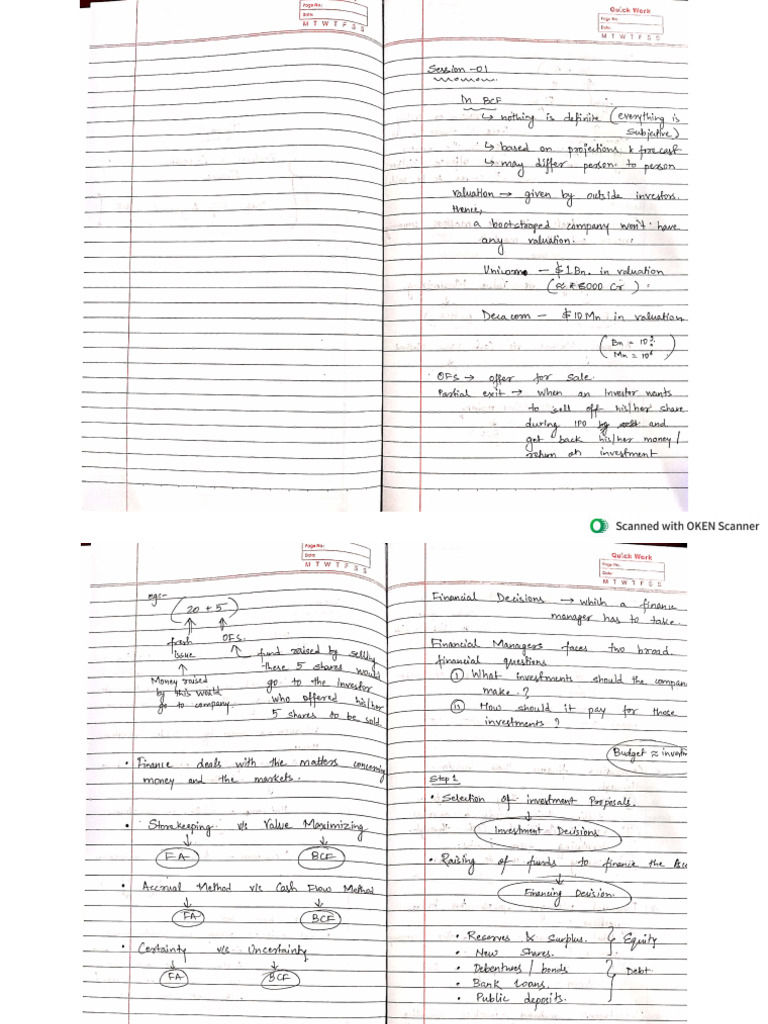 Page No.:
Date:
M T W T F S S
Quick Work
Page No.:
Date:
M T W T F S S
Session -01
In BCF
↳ nothing is definite (everything is
subjective)
↳ based on projections & forecast
↳ may differ person to person
Valuation → given by outside investors.
Hence,
a bootstraped company won't have
any valuation.
Unicorn — $1Bn. in valuation
(≈ ₹ 8000 Cr)
Decacorn — $10Mn in valuation
(Bn = 10⁹
Mn = 10⁶)
OFS → offer for sale.
Partial exit → when an Investor wants
to sell off his/her share
during IPO and
get back his/her money/
return on investment
Scanned with OKEN Scanner
Page No.:
Date:
M T W T F S S
egs-
(20 + 5)
fresh
issue
OFS.
Money raised
by this would
go to company
fund raised by selling
these 5 shares would
go to the Investor
who offered his/her
5 shares to be sold
• Finance deals with the matters concerning
money and the markets.
• Storekeeping v/s Value Maximizing
FA BCF
• Accrual Method v/s Cash Flow Method
FA BCF
• Certainty v/s Uncertainty
FA BCF
Quick Work
Page No.
Date:
M T W T F S S
Financial Decisions → which a finance
manager has to take.
Financial Managers faces two broad
financial questions
(i) What investments should the compan
make?
(ii) How should it pay for those
investments?
Budget ≈ investm
Step 1
• Selection of investment Proposals.
Investment Decisions
• Raising of funds to finance the
Financing Decision
• Reserves & Surplus.
• New Shares.
} Equity
• Debentures / bonds
• Bank Loans.
• Public deposits.
} Debt